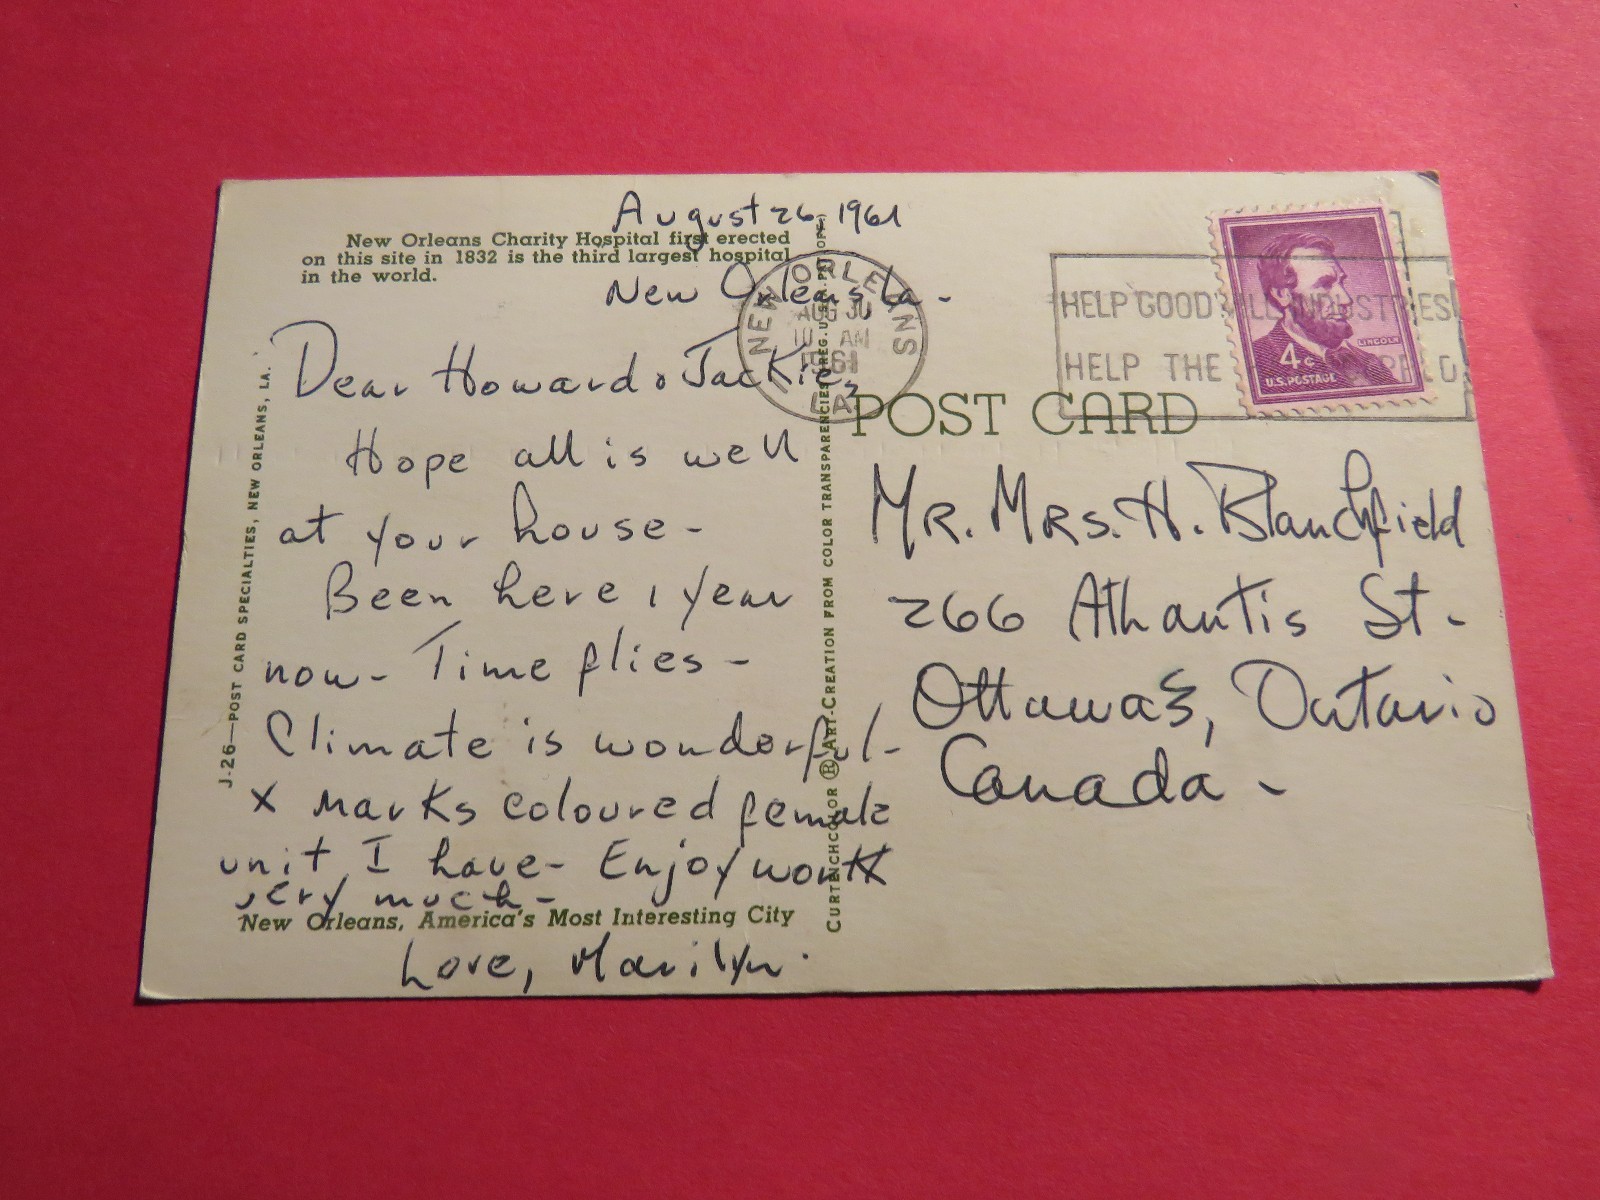 August 26, 1961
New Orleans Charity Hospital first erected
on this site in 1832 is the third largest hospital
in the world.
New Orleans, La.
Dear Howard & Jackie,
Hope all is well
at your house -
Been here 1 year
now - Time flies -
Climate is wonderful -
X marks coloured female
unit I have - Enjoy work
very much -
New Orleans, America's Most Interesting City
Love, Marilyn.
J-26—POST CARD SPECIALTIES, NEW ORLEANS, LA.
CURTEICHCOLOR ® ART-CREATION FROM COLOR TRANSPARENCIES (REG. U.S.A. PAT. OFF.)
NEW ORLEANS
AUG 30
10 AM
1961
LA
HELP GOODWILL INDUSTRIES
HELP THE
LINCOLN
4c
U.S. POSTAGE
POST CARD
Mr. Mrs. H. Blanchfield
266 Athantis St -
Ottawa 3, Ontario
Canada -